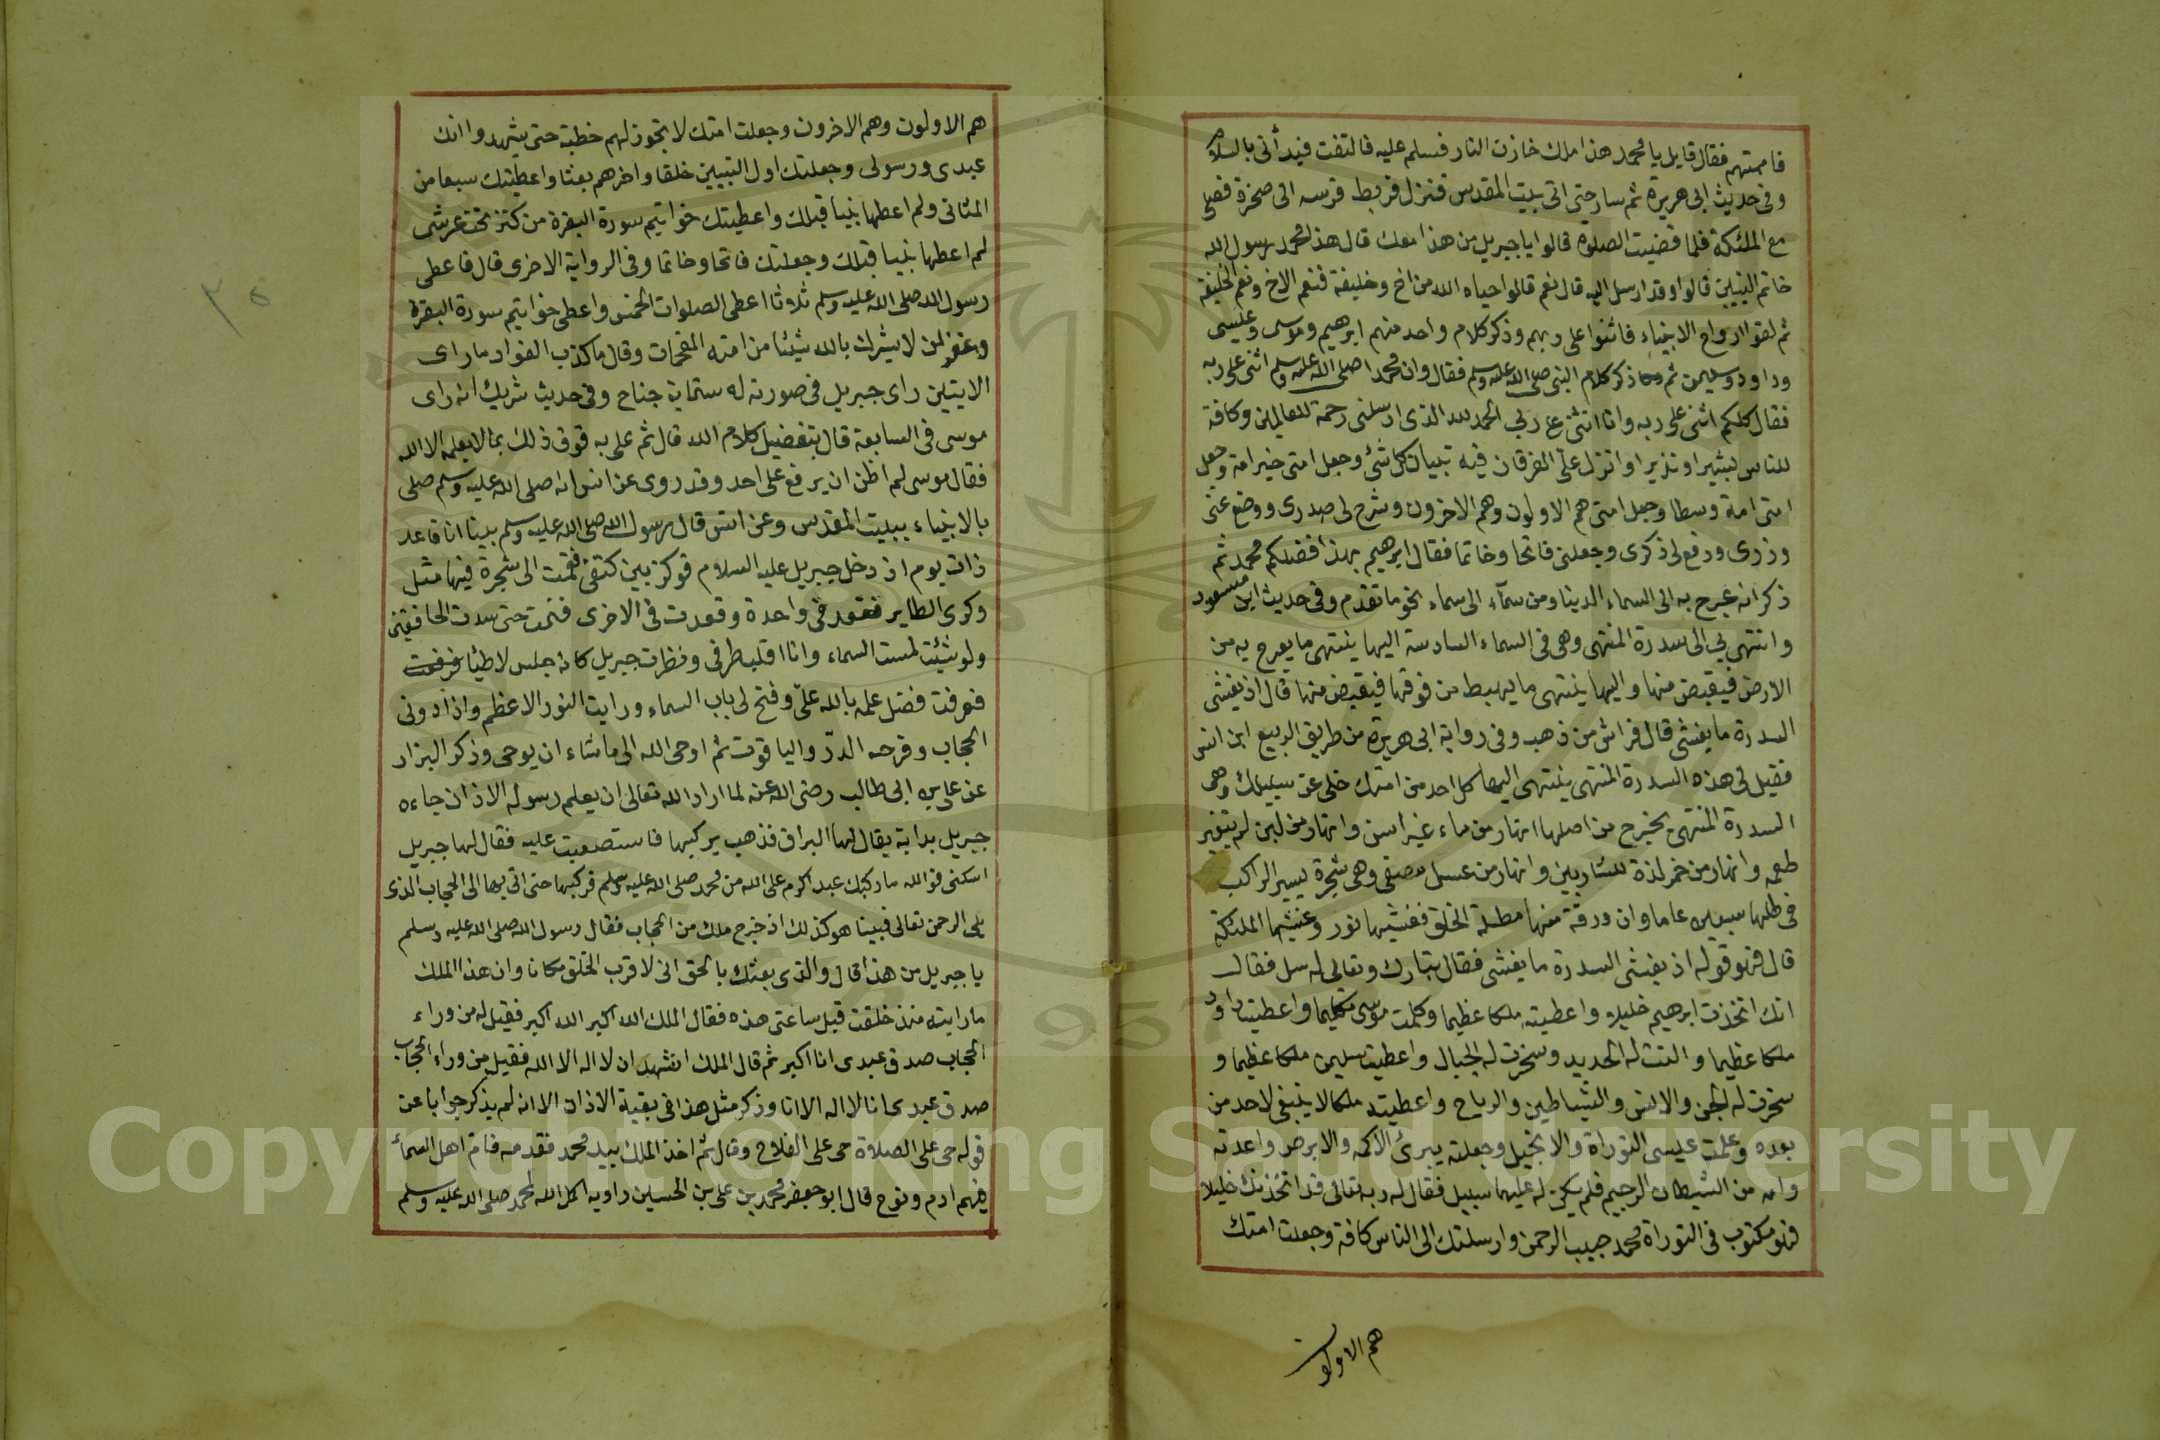 فاممتهم فقال قايل يا محمد هذا ملك خازن النار فسلم عليه فالتفت فبدأنى بالسلام
وفى حديث ابى هريرة ثم سار حتى اتى بيت المقدس فنزل فربط فرسه الى صخرة فصلى
مع الملئكة فلما قضيت الصلوة قالوا يا جبريل من هذا معك قال هذا محمد رسول الله
خاتم النبيين قالوا وقد ارسل اليه قال نعم قالوا حياه الله من اخ وخليفة فنعم الاخ ونعم الخليفة
ثم لقوا ارواح الانبياء فاثنوا على ربهم وذكر كلام واحد منهم ابرهيم وموسى وعيسى
وداود وسليمن ثم ذكر كلام النبى صلى الله عليه وسلم فقال وان محمدا صلى الله عليه وسلم اثنى على ربه
فقال كلكم اثنى على ربه وانا اثنى على ربي الحمد لله الذى ارسلنى رحمة للعالمين وكافة
للناس بشيرا ونذيرا وانزل علىّ الفرقان فيه تبيان كل شئ وجعل امتى خير امة وجعل
امتى امة وسطا وجعل امتى هم الاولون وهم الاخرون وشرح لى صدرى ووضع عنى
وزرى ورفع لى ذكرى وجعلنى فاتحا وخاتما فقال ابرهيم بهذا فضلكم محمد ثم
ذكر انه عرج به الى السماء الدينا ومن سمآء الى سماء نحو ما تقدم وفى حديث ابن مسعود
وانتهى بي الى سدرة المنتهى وهى فى السماء السادسة اليها ينتهى ما يعرج به من
الارض فيقبض منها واليها ينتهى ما يهبط من فوقها فيقبض منها قال اذ يغشى
السدرة ما يغشى قال فراش من ذهب وفى رواية ابى هريرة من طريق الربيع ابن انس
فقيل لى هذه السدرة المنتهى ينتهى اليها كل احد من امتك خلى عن سبيلك وهى
السدرة المنتهى يخرج من اصلها انهار من ماء غير اسن وانهار من لبن لم يتغير
طعمه وانهار من خمر لذة للشاربين وانهار من عسل مصفى وهى شجرة يسير الراكب
فى ظلها سبعين عاما وان ورقة منها مظلة الخلق فغشيها نور وغشيها الملئكة
قال فهو قوله اذ يغشى السدرة ما يغشى فقال تبارك وتعالى له سل فقال
انك اتخذت ابرهيم خليلا واعطيته ملكا عظيما وكلمت موسى تكليما واعطيت داود
ملكا عظيما والنت له الحديد وسخرت له الجبال واعطيت سليمن ملكا عظيما و
سخرت له الجن والانس والشياطين والرياح واعطيته ملكا لا ينبغى لاحد من
بعده وعلمت عيسى التوراة والانجيل وجعلته يبرئ الاكمه والابرص واعدته
وامه من الشيطان الرجيم فلم يكن له عليهما سبيل فقال له ربه تعالى قد اتخذتك خليلا
فهو مكتوب فى التوراة محمد حبيب الرحمن وارسلتك الى الناس كافة وجعلت امتك
هم الاولون
هم الاولون وهم الاخرون وجعلت امتك لا تجوز لهم خطبة حتى يشهدوا انك
عبدى ورسولى وجعلتك اول النبيين خلقا واخرهم بعثا واعطيتك سبعا من
المثانى ولم اعطها نبيا قبلك واعطيتك خواتيم سورة البقرة من كنز تحت عرشى
لم اعطها نبيا قبلك وجعلتك فاتحا وخاتما وفى الرواية الاخرى قال فاعطى
رسول الله صلى الله عليه وسلم ثلاثا اعطى الصلوات الخمس واعطى خواتيم سورة البقرة
وغفر لمن لا يشرك بالله شيئا من امته المقحمات وقال ما كذب الفواد ما راى
الايتين راى جبريل فى صورته له ستماية جناح وفى حديث شريك انه راى
موسى فى السابعة قال بتفضيل كلام الله قال ثم على به فوق ذلك بما لا يعلمه الا الله
فقال موسى لم اظن ان يرفع على احد وقد روى عن انس انه صلى الله عليه وسلم صلى
بالانبياء ببيت المقدس وعن انس قال رسول الله صلى الله عليه وسلم بينا انا قاعد
ذات يوم اذ دخل جبريل عليه السلام فوكز بين كتفى فقمت الى شجرة فيها مثل
وكرى الطاير فقعد فى واحدة وقعدت فى الاخرى فنمت حتى سدت الخافقين
ولو شئت لمست السماء وانا اقلب طرفى ونظرت جبريل كانه حلس لاطئا
فعرفت فضل علمه بالله علىّ وفتح لى باب السماء ورايت النور الاعظم واذا دونى
الحجاب وفرجه الدرّ والياقوت ثم اوحى الله الى ما شاء ان يوحى وذكر البزار
عن على بن ابى طالب رضى الله عنه لما اراد الله تعالى ان يعلم رسوله الاذان جاءه
جبريل بدابة يقال لها البراق فذهب يركبها فاستصعبت عليه فقال لها جبريل
اسكنى فوالله ما ركبك عبد اكرم على الله من محمد صلى الله عليه وسلم فركبها حتى اتى بها الى الحجاب الذى
يلى الرحمن تعالى فبينا هو كذلك اذ خرج ملك من الحجاب فقال رسول الله صلى الله عليه وسلم
يا جبريل من هذا قال والذى بعثك بالحق انى لاقرب الخلق مكانا وان هذا الملك
ما رايته منذ خلقت قبل ساعتى هذه فقال الملك الله اكبر الله اكبر فقيل له من وراء
الحجاب صدق عبدى انا اكبر ثم قال الملك اشهد ان لا اله الا الله فقيل من وراء الحجاب
صدق عبدى انا لا اله الا انا وذكر مثل هذا فى بقية الاذان الا انه لم يذكر جوابا عن
قوله حى على الصلاة حى على الفلاح وقال ثم اخذ الملك بيد محمد فقدمه فامّ اهل السماء
فيهم ادم ونوح قال ابو جعفر محمد بن على بن الحسين راويه اكمل الله لمحمد صلى الله عليه وسلم
٣٥
Copyright © King Saud University
1957